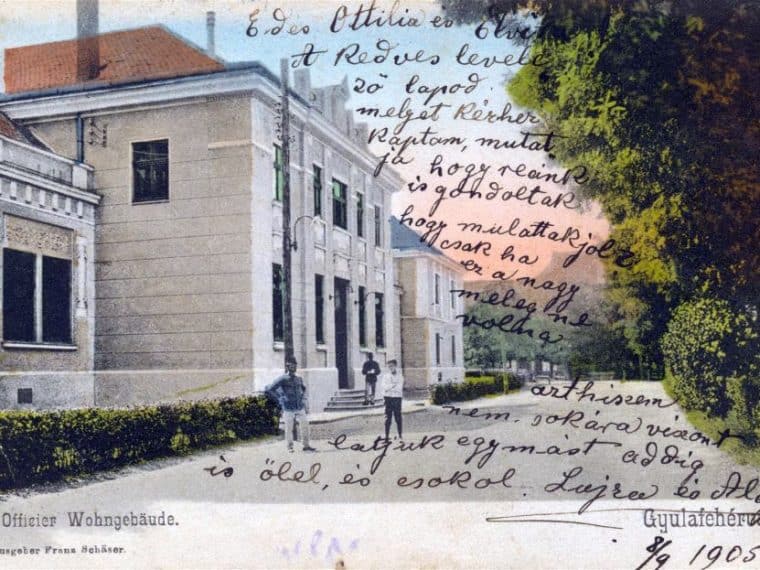 Edes Ottilia es Elvira
A Kedves levele
ző lapod
melyet kézhez
Kaptam, mutat
ja hogy reánk
is gondoltak
hogy mulattak jól
csak ha
ez a nagy
meleg ne
volna
azthiszem
nem sokára vizont
latjuk egymást addig
is ölel, és csokol. Lujza és
Officier Wohngebäude.
Gyulafehérv
usgeber Franz Schäser.
8/9 1905